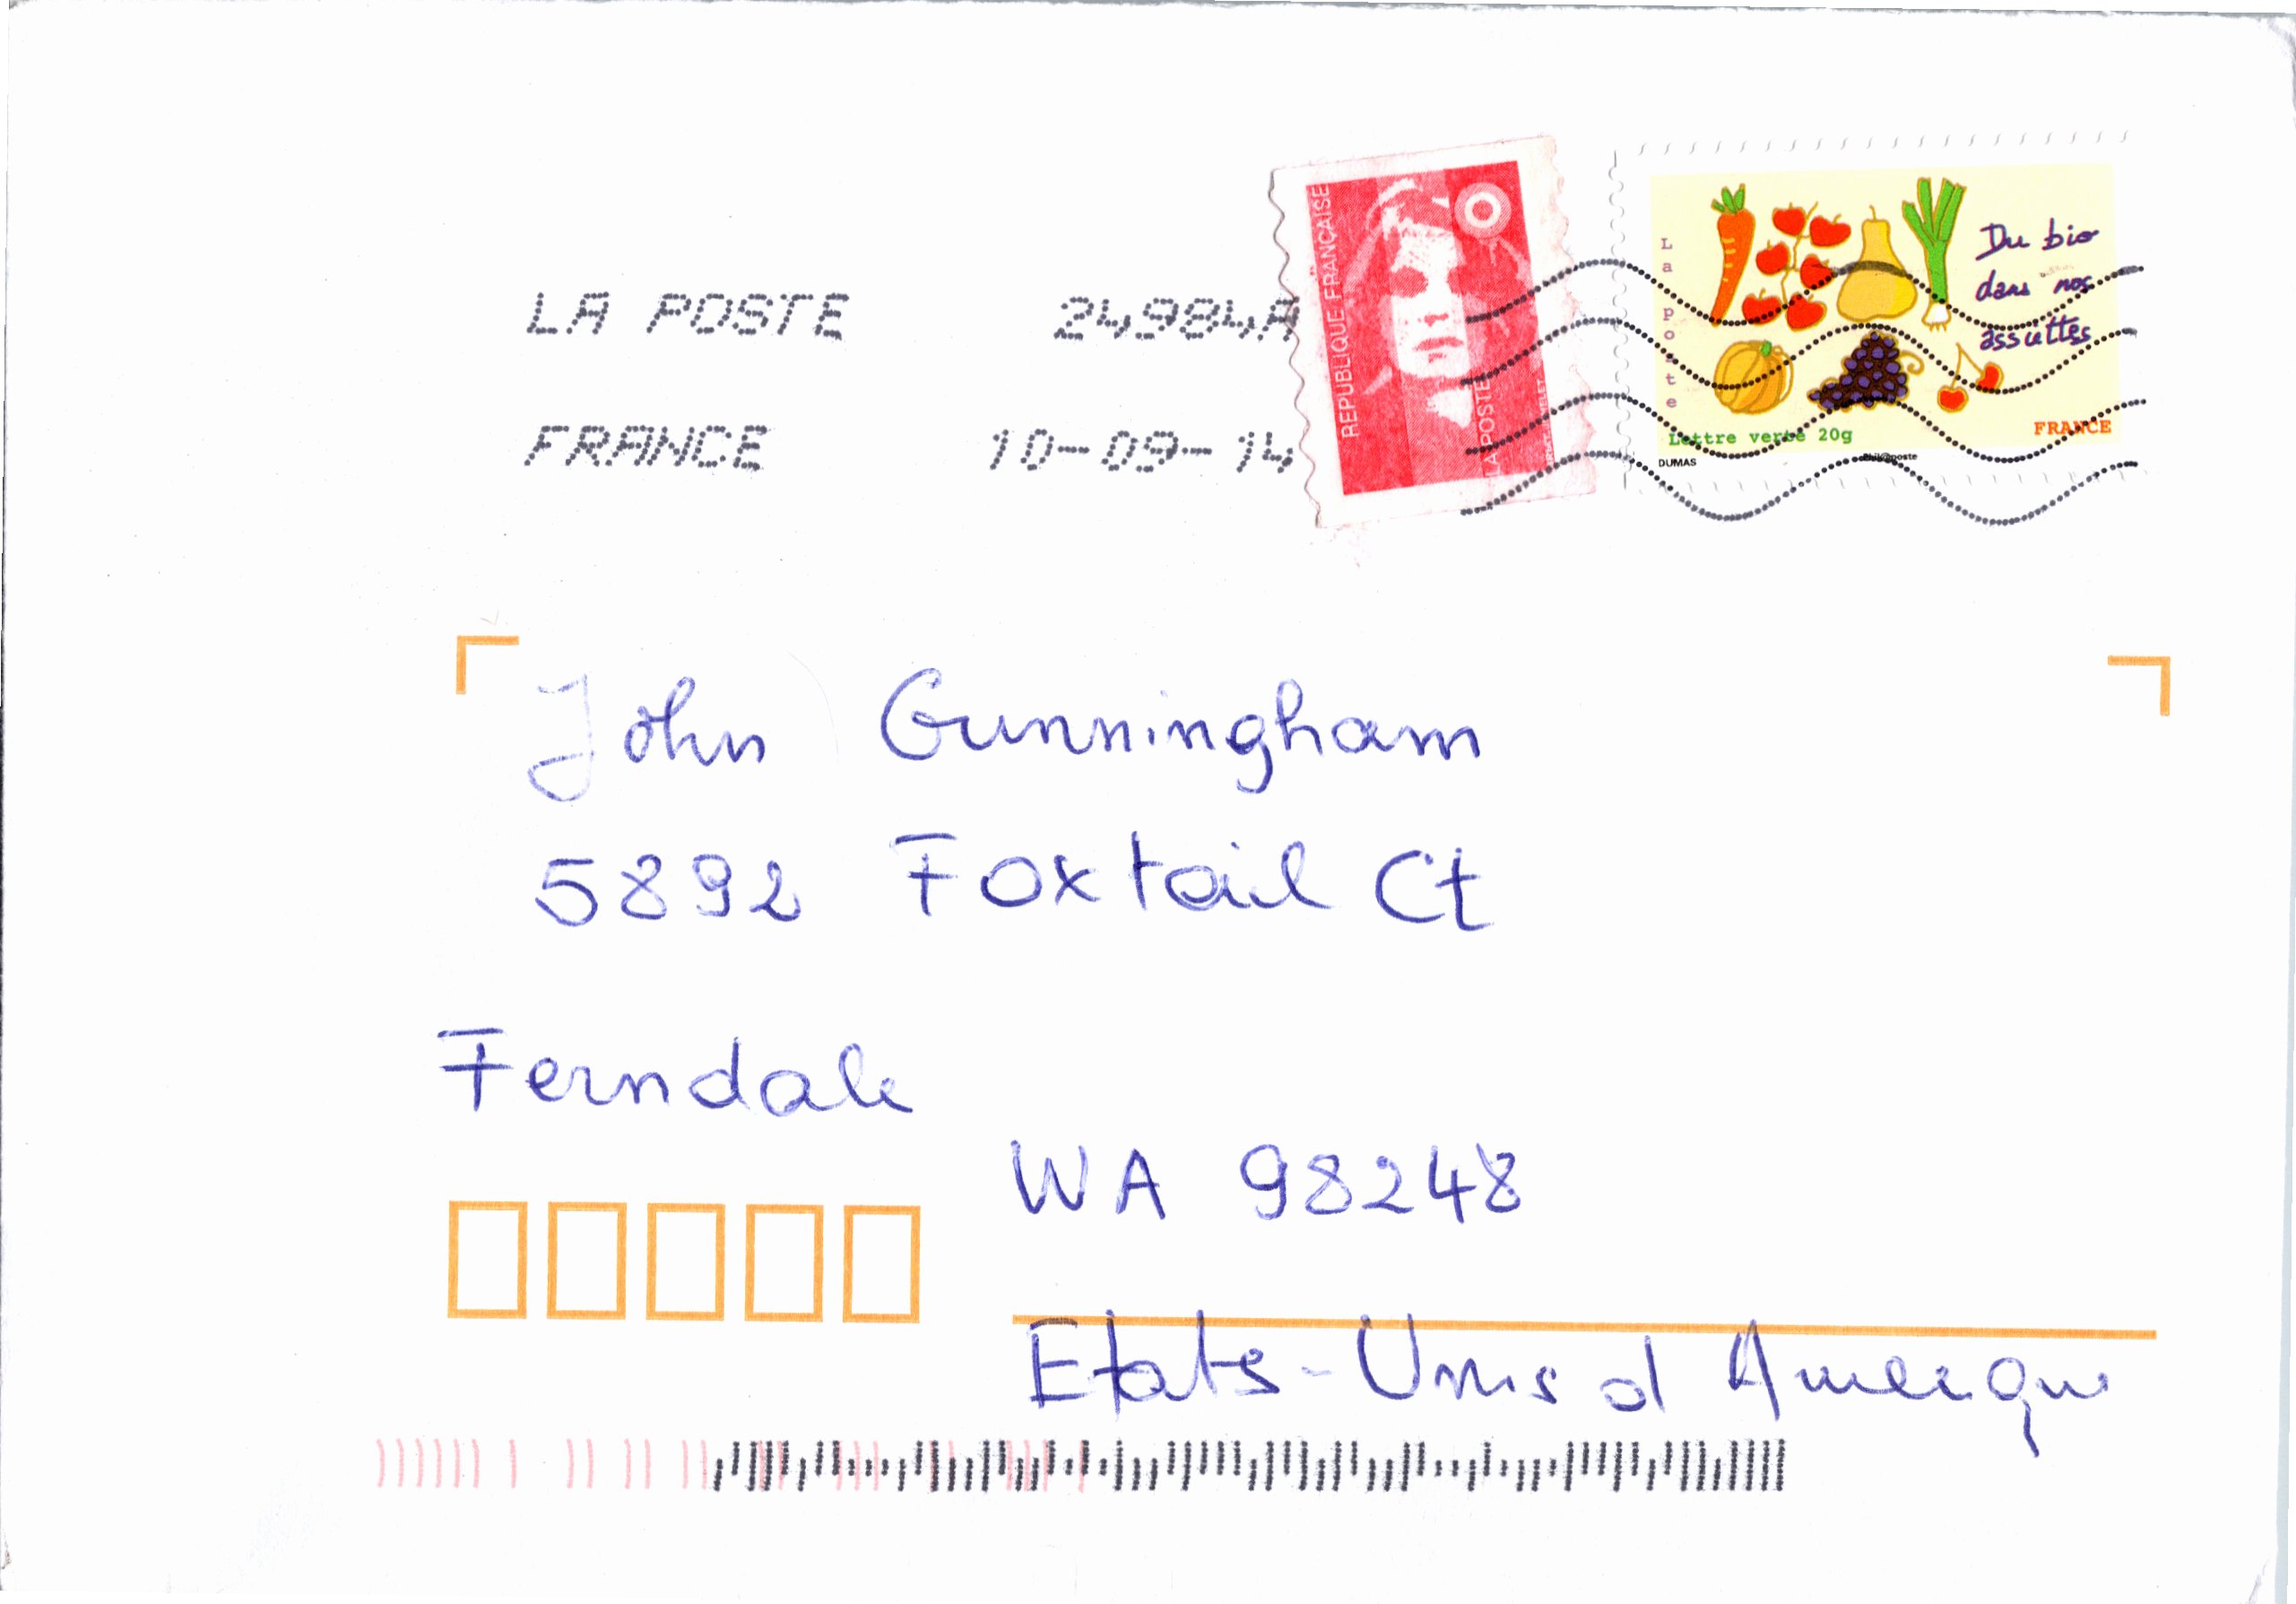 LA POSTE 24984A
FRANCE 10-09-14
REPUBLIQUE FRANÇAISE
LA POSTE
La poste
Du bio
dans nos
assiettes
Lettre verte 20g
FRANCE
DUMAS
phil@poste
John Cunningham
5892 Foxtail Ct
Ferndale
WA 98248
Etats-Unis d Amerique